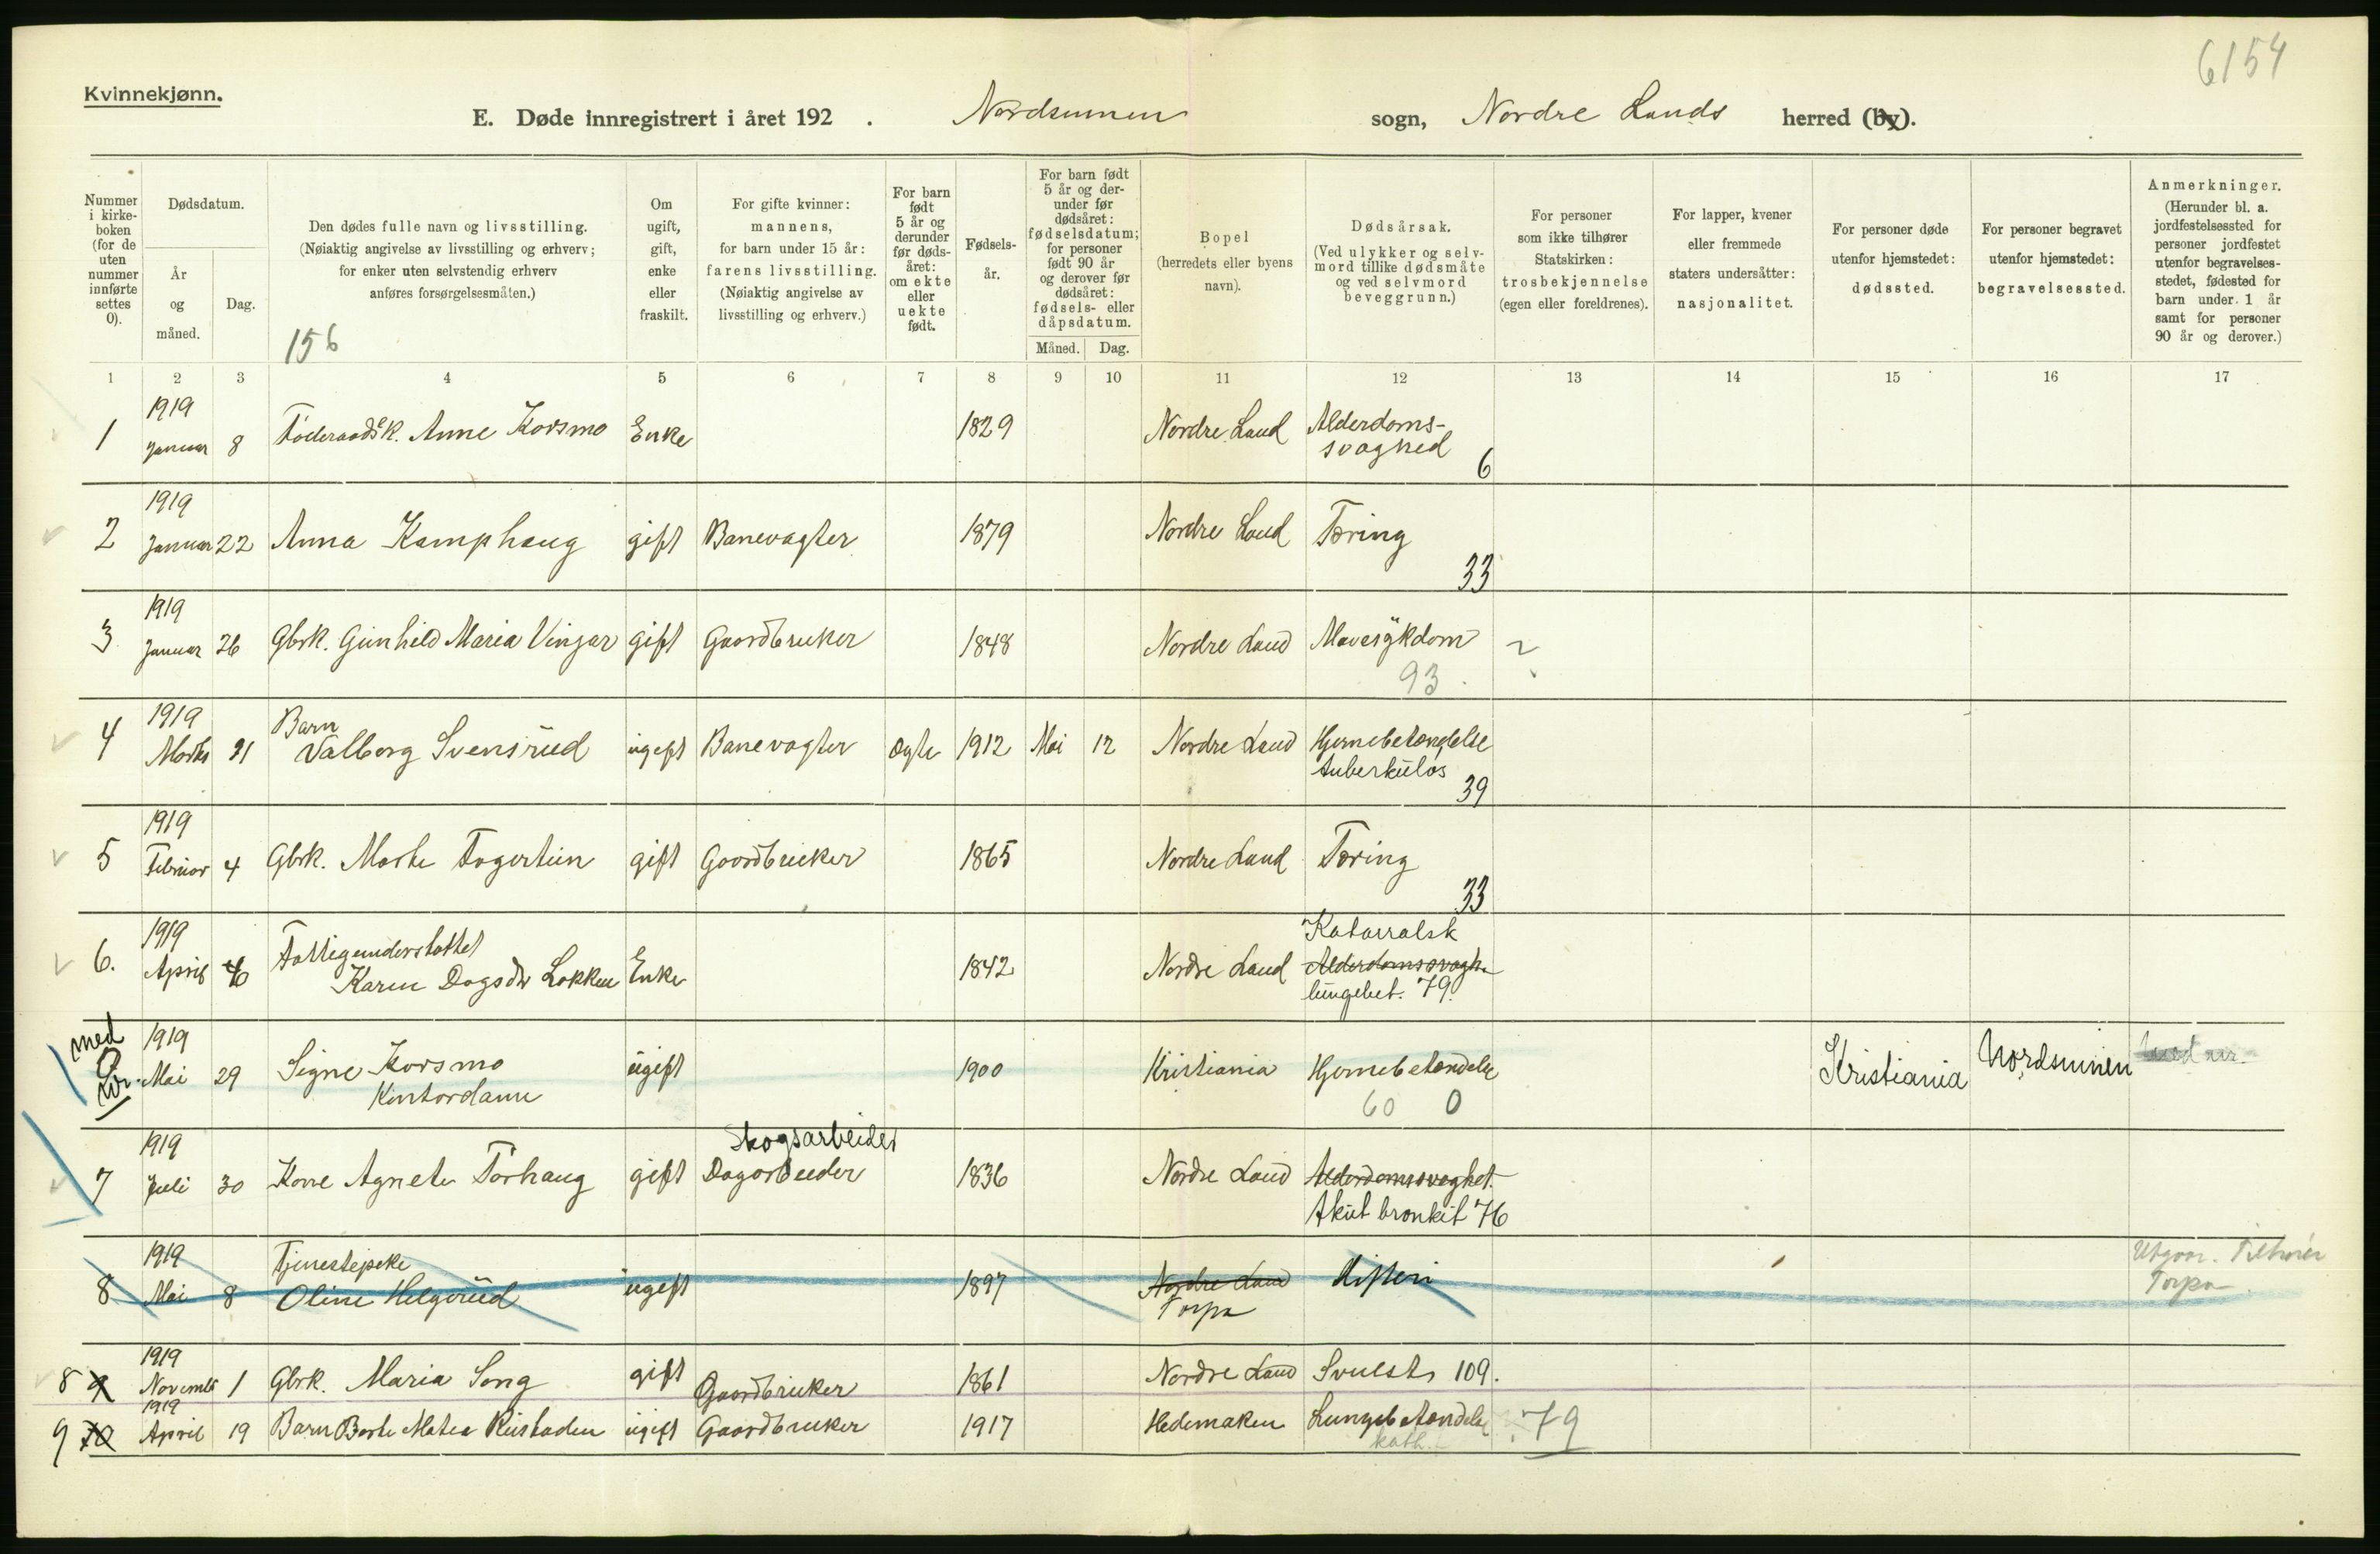 6154
Kvinnekjønn.
E. Døde innregistrert i året 192 . Nordsinnen sogn, Nordre Lands herred (by).
Nummer i kirkeboken (for de uten nummer innførte settes 0).
Dødsdatum.
År og måned.
Dag.
Den dødes fulle navn og livsstilling.
(Nøiaktig angivelse av livsstilling og erhverv;
for enker uten selvstendig erhverv
anføres forsørgelsesmåten.)
156
Om ugift, gift, enke eller fraskilt.
For gifte kvinner:
mannens,
for barn under 15 år:
farens livsstilling.
(Nøiaktig angivelse av
livsstilling og erhverv.)
For barn født 5 år og derunder før dødsåret: om ekte eller uekte født.
Fødselsår.
For barn født 5 år og derunder før dødsåret: fødselsdatum; for personer født 90 år og derover før dødsåret: fødsels- eller dåpsdatum.
Måned. Dag.
Bopel
(herredets eller byens
navn).
Dødsårsak.
(Ved ulykker og selvmord tillike dødsmåte og ved selvmord beveggrunn.)
For personer
som ikke tilhører
Statskirken:
trosbekjennelse
(egen eller foreldrenes).
For lapper, kvener
eller fremmede
staters undersåtter:
nasjonalitet.
For personer døde
utenfor hjemstedet:
dødssted.
For personer begravet
utenfor hjemstedet:
begravelsessted.
Anmerkninger.
(Herunder bl. a. jordfestelsessted for personer jordfestet utenfor begravelsesstedet, fødested for barn under 1 år samt for personer 90 år og derover.)
1 2 3 4 5 6 7 8 9 10 11 12 13 14 15 16 17
1 1919 Januar 8 Föderaadsk. Anne Korsmo Enke 1829 Nordre Land Alderdoms-
svaghed 6
2 1919 Januar 22 Anna Kamphaug gift Banevagter 1879 Nordre Land Tæring
33
3 1919 Januar 26 Gbrk. Gunhild Maria Vingar gift Gaardbruker 1848 Nordre Land Mavesykdom
93
4 1919 Marts 31 Barn
Valborg Svensrud ugift Banevagter Ægte 1912 Mai 12 Nordre Land Hjernebetændelse
tuberkulos 39
5 1919 Februar 4 Gbrk. Marte Fagertun gift Gaardbruker 1865 Nordre Land Tæring
33
6. 1919 April Fattigunderstøttet
Karen Dagsdtr Løkken Enke 1842 Nordre Land Katarralsk
Alderdomssvagh.
lungebet. 79.
med
0
nr. 1919 Mai 29 Signe Korsmo
Kontordame ugift 1900 Kristiania Hjernebetændelse
60 0 Kristiania Nordsinnen
7 1919 Juli 30 Kone Agnete Törhaug gift Skogsarbeider
Dagarbeider 1836 Nordre Land Alderdomssvaghet.
Akut bronkit 76
8 1919 Mai 8 Tjenestepike
Oline Helgerud ugift 1897 Nordre Land
Torpa Difteri Utgaar. Tilhører
Torpa
8 9 1919 November 1 Gbrk. Maria Song gift Gaardbruker 1861 Nordre Land Svulst 109.
9 10 1919 April 19 Barn Borte Matea Rustaden ugift Gaardbruker 1917 Hedemaken Lungebetændelse 79
kath.